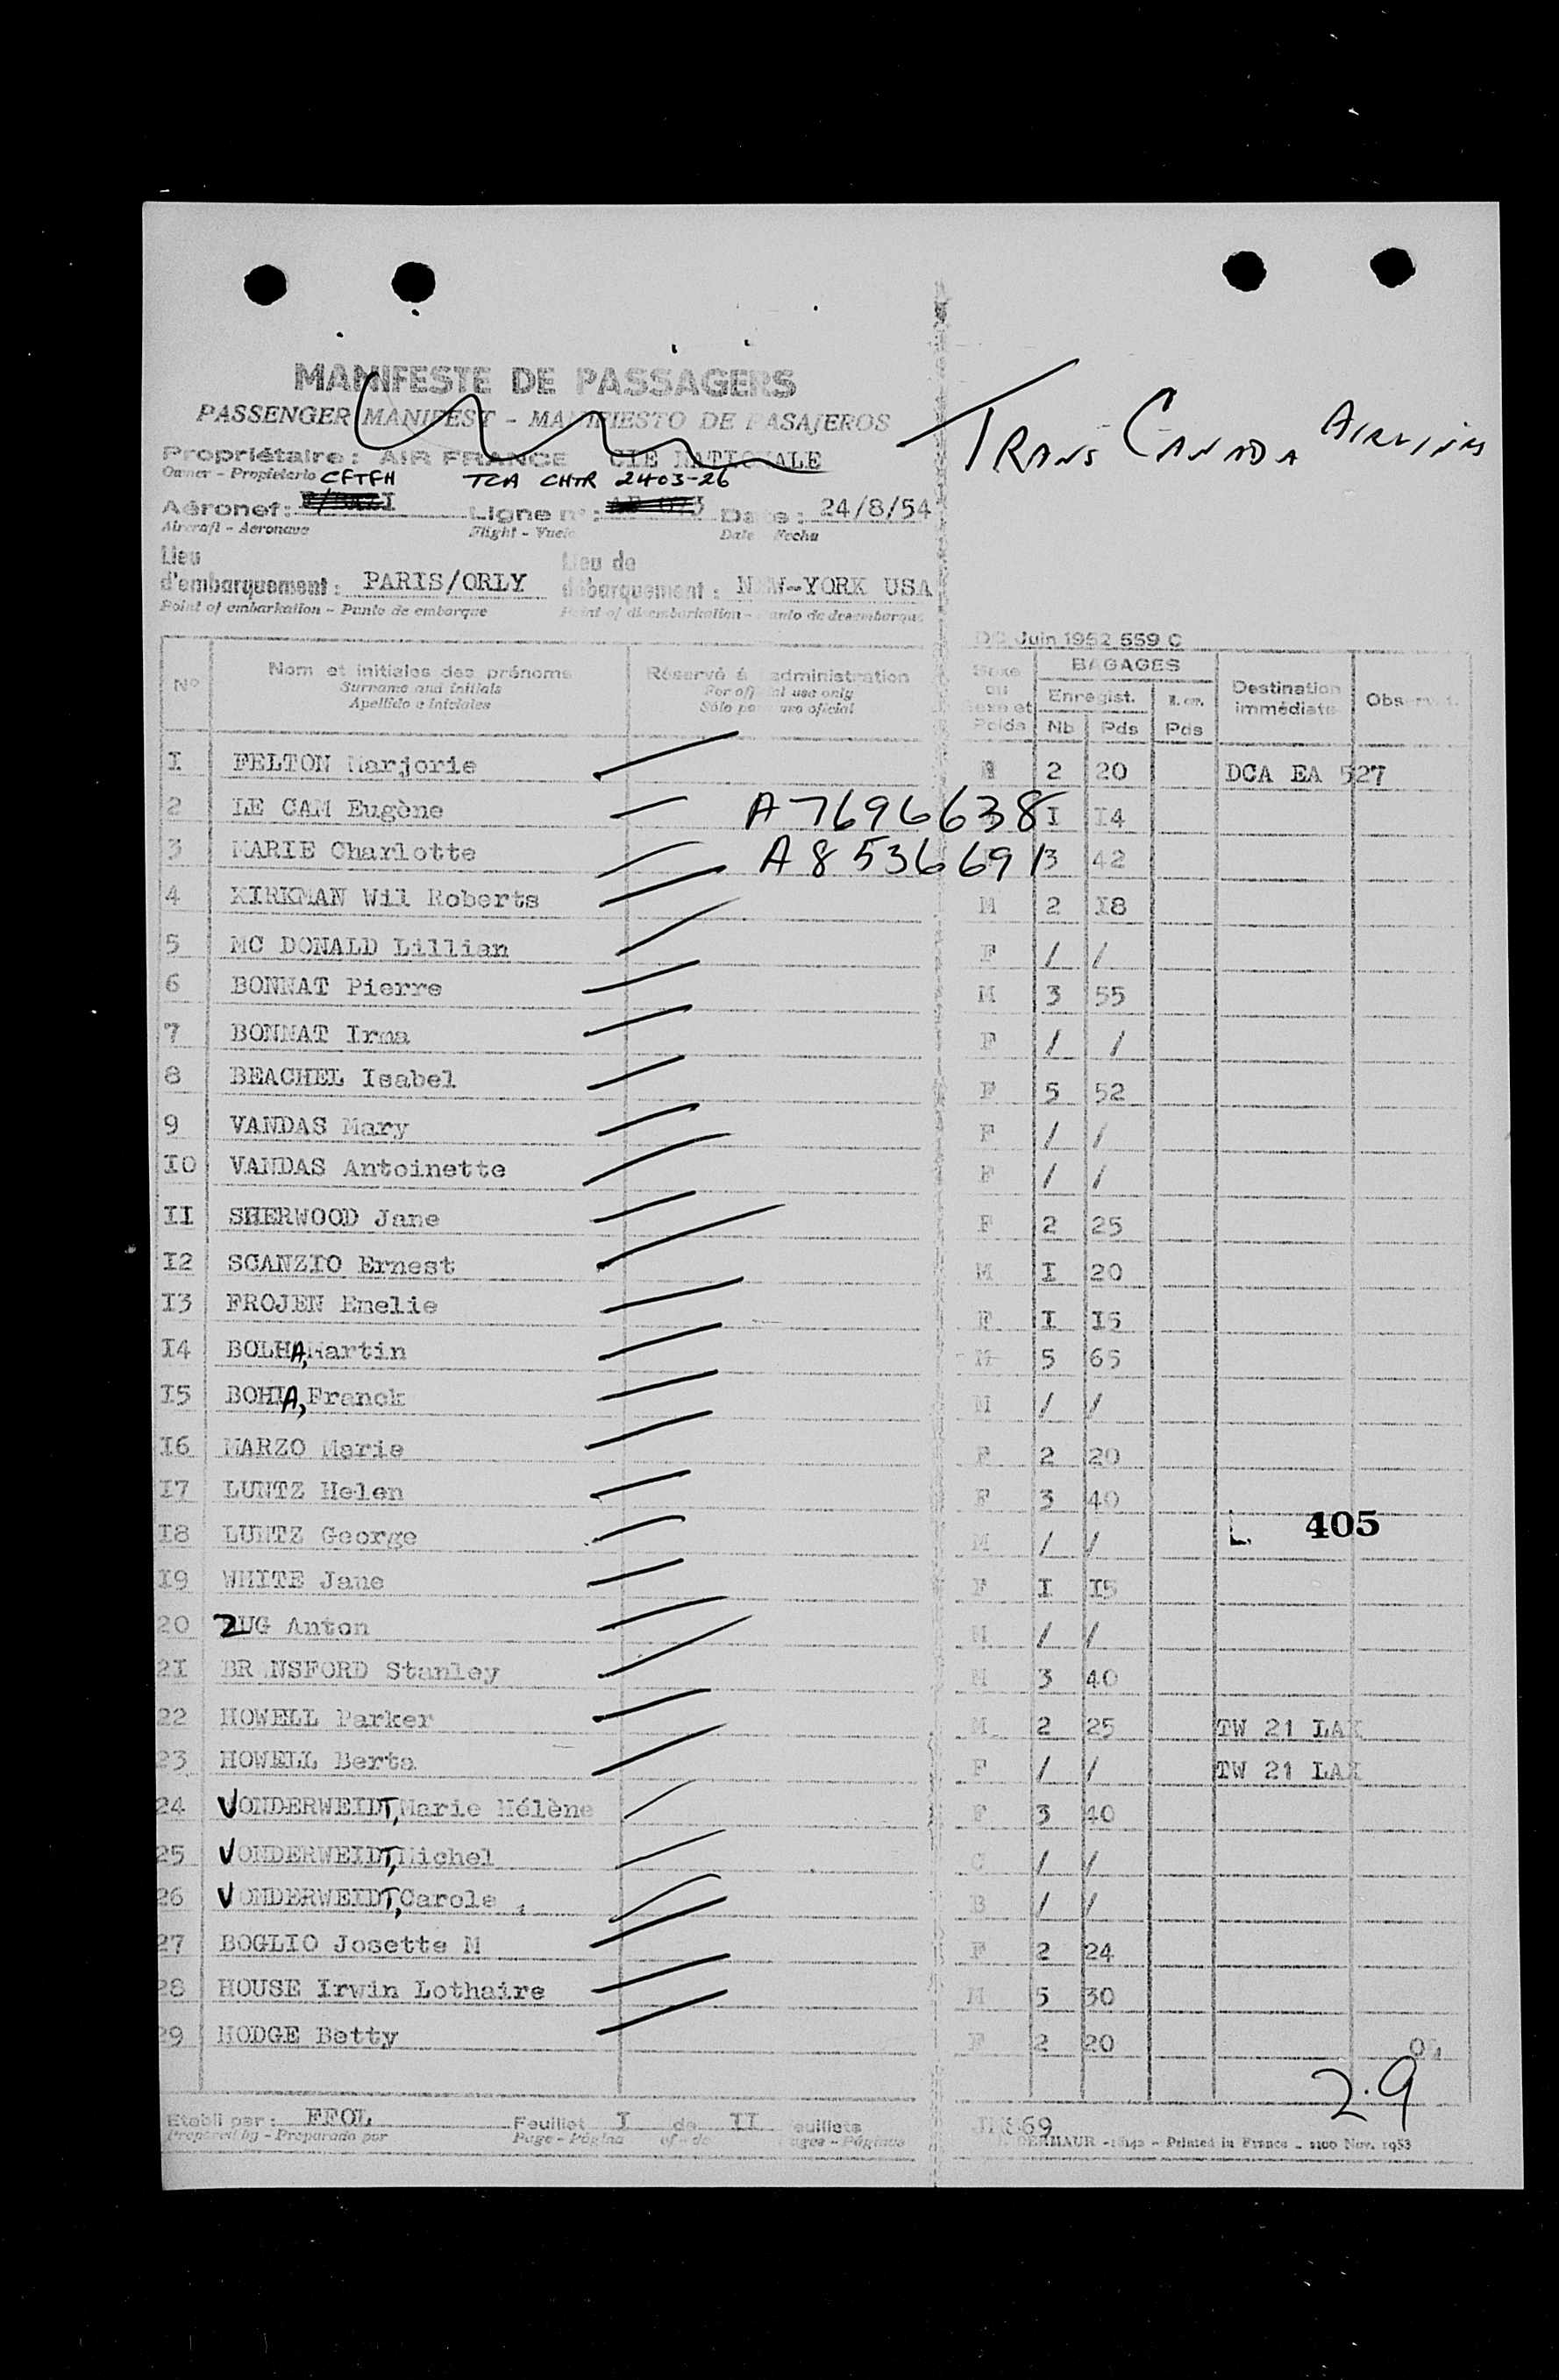 MANIFESTE DE PASSAGERS
PASSENGER MANIFEST - MANIFIESTO DE PASAJEROS
TRANS CANADA AIRLINES
Propriétaire : AIR FRANCE CIE NATIONALE
Owner - Propietario CFTFH TCA CHTR 2403-26
Aéronef : Ligne n° : Date : 24/8/54
Aircraft - Aeronave Flight - Vuelo Date Fecha
Lieu d'embarquement : PARIS/ORLY Lieu de débarquement : NEW-YORK USA
Point of embarkation - Punto de embarque Point of disembarkation - Punto de desembarque
Juin 1952 559 C
N° Nom et initiales des prénoms Réservé à l'administration Sexe ou Sexe et Poids BAGAGES Destination immédiate Observat.
Surname and initials For official use only Enregist.
Apellido e iniciales Sólo para uso oficial Nb Pds Pds
I FELTON Marjorie 2 20 DCA EA 527
2 LE CAM Eugène A7696638 I I4
3 MARIE Charlotte A8536691 3 42
4 KIRKMAN Wil Roberts M 2 I8
5 MC DONALD Lillian F / /
6 BONNAT Pierre M 3 55
7 BONNAT Irma F / /
8 BEACHEL Isabel F 5 52
9 VANDAS Mary F / /
I0 VANDAS Antoinette F / /
II SHERWOOD Jane F 2 25
I2 SCANZIO Ernest M I 20
I3 FROJEN Emelie F I I5
I4 BOLHA, Martin M 5 65
I5 BOHIA, Franck M / /
I6 MARZO Marie F 2 20
I7 LUNTZ Helen F 3 40
I8 LUNTZ George M / /
L. 405
I9 WHITE Jane F I I5
20 ZUG Anton M / /
2I BR NSFORD Stanley M 3 40
22 HOWELL Parker M 2 25 TW 21 LAX
23 HOWELL Berta F / / TW 21 LAX
24 VONDERWEIDT, Marie Hélène F 3 40
25 VONDERWEIDT, Michel C / /
26 VONDERWEIDT, Carole B / /
27 BOGLIO Josette M F 2 24
28 HOUSE Irwin Lothaire M 5 30
29 HODGE Betty F 2 20
2.9
Etabli par : FFOL Feuillet I de II feuillets
Prepared by - Preparado por Page - Página of - de Pages - Páginas
Printed in France - 1100 Nov. 1953